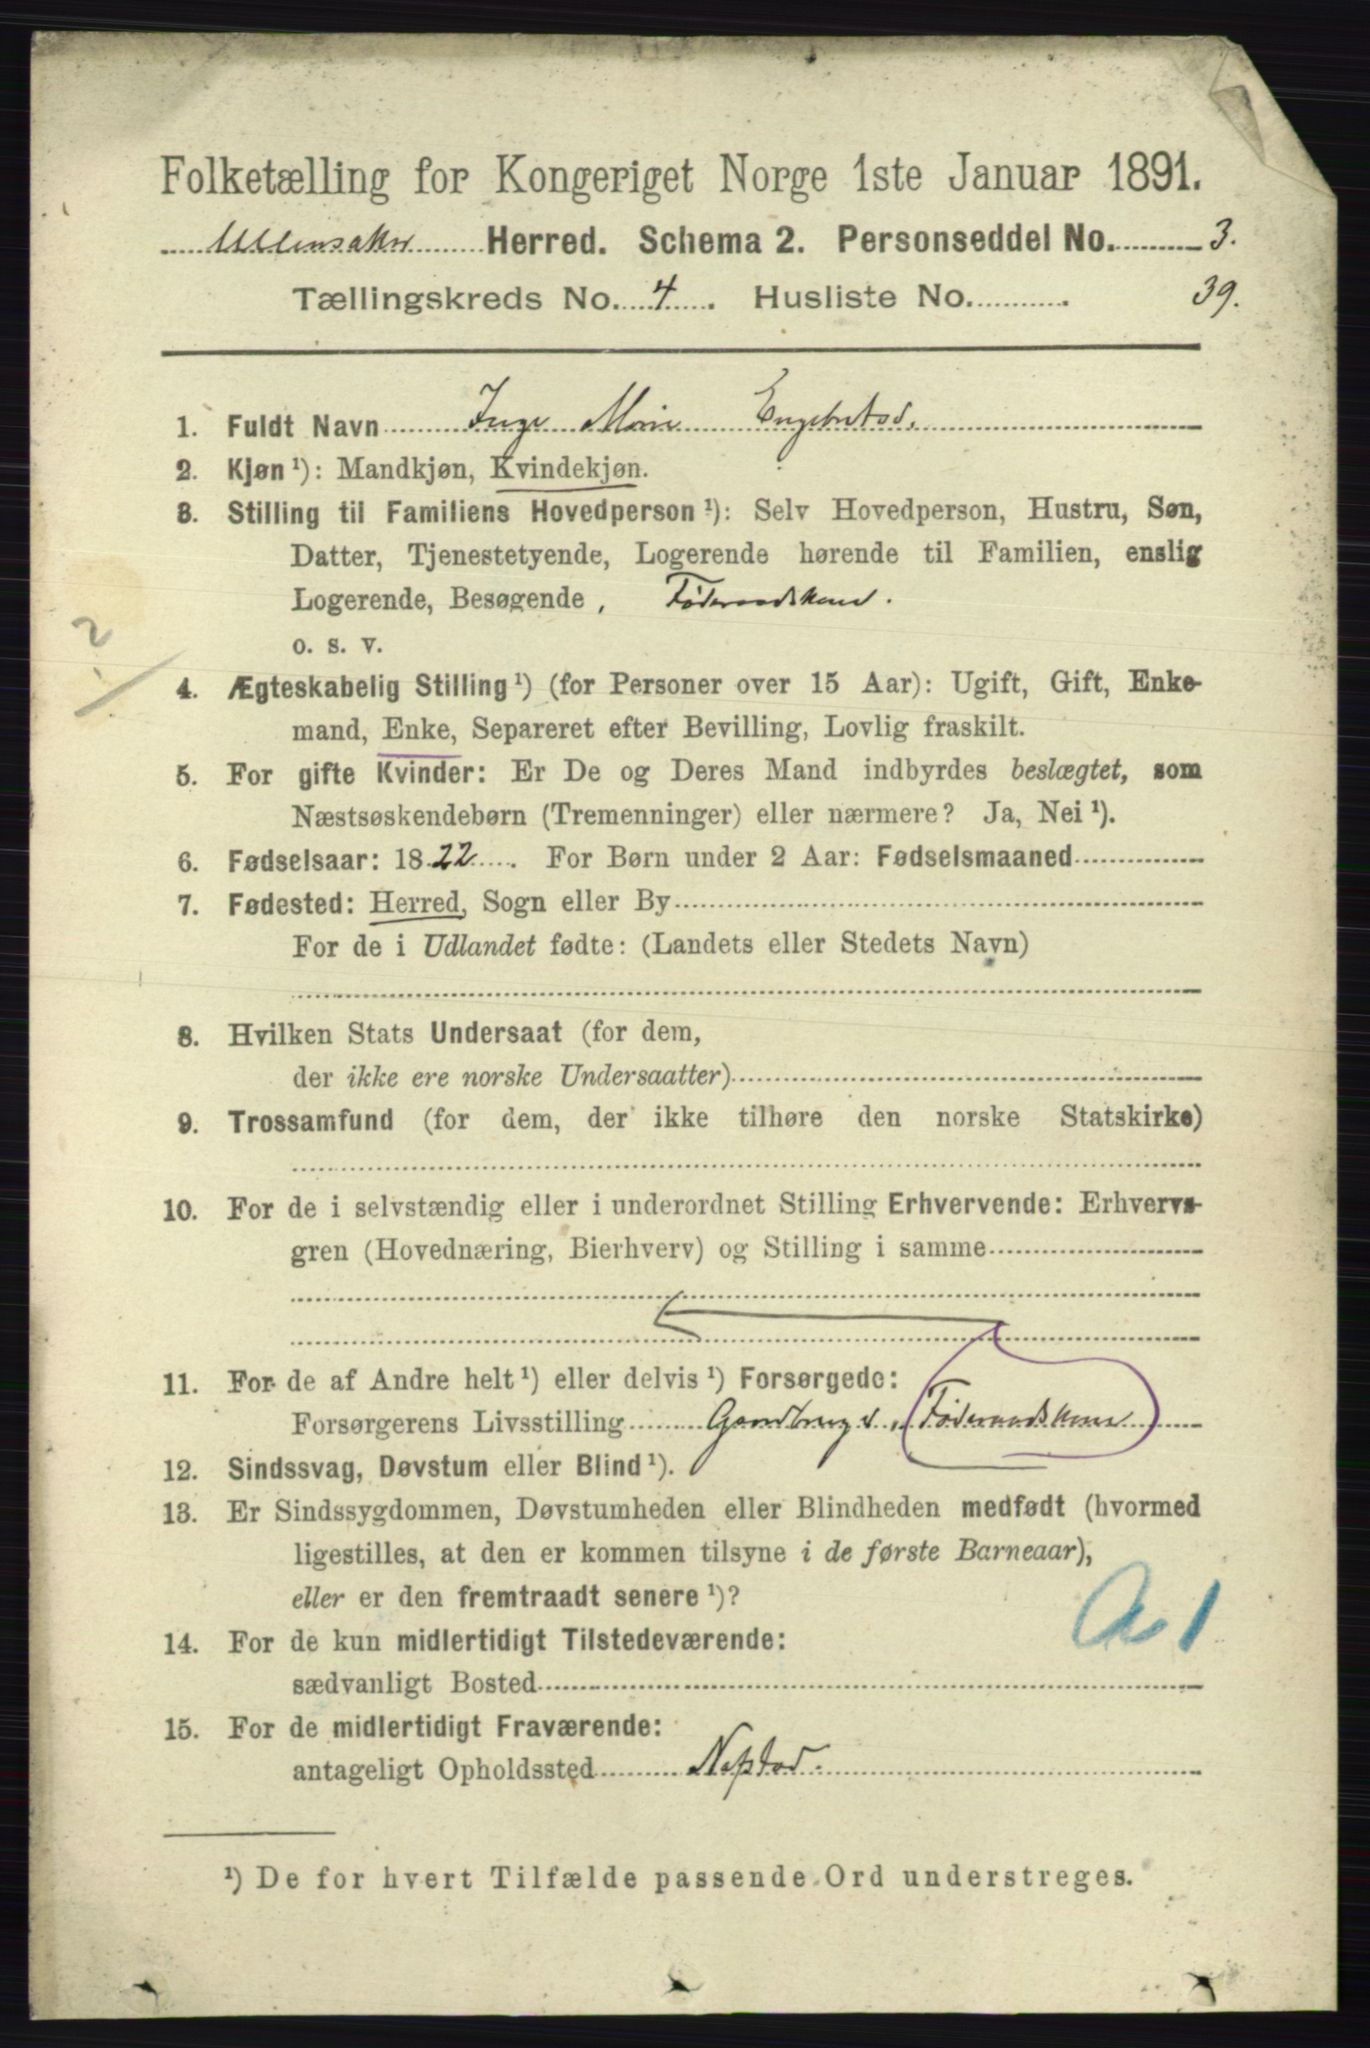 Folketælling for Kongeriget Norge 1ste Januar 1891.
Ullensaker Herred. Schema 2. Personseddel No. 3.
Tællingskreds No. 4. Husliste No. 39.
1. Fuldt Navn Inge Marie Engebretsd.
2. Kjøn ¹): Mandkjøn, Kvindekjøn.
3. Stilling til Familiens Hovedperson ¹): Selv Hovedperson, Hustru, Søn,
Datter, Tjenestetyende, Logerende hørende til Familien, enslig
Logerende, Besøgende, Føderaadskone.
o. s. v.
2
4. Ægteskabelig Stilling ¹) (for Personer over 15 Aar): Ugift, Gift, Enke-
mand, Enke, Separeret efter Bevilling, Lovlig fraskilt.
5. For gifte Kvinder: Er De og Deres Mand indbyrdes beslægtet, som
Næstsøskendebørn (Tremenninger) eller nærmere? Ja, Nei ¹).
6. Fødselsaar: 1822. For Børn under 2 Aar: Fødselsmaaned
7. Fødested: Herred, Sogn eller By
For de i Udlandet fødte: (Landets eller Stedets Navn)
8. Hvilken Stats Undersaat (for dem,
der ikke ere norske Undersaatter)
9. Trossamfund (for dem, der ikke tilhøre den norske Statskirke)
10. For de i selvstændig eller i underordnet Stilling Erhvervende: Erhvervs-
gren (Hovednæring, Bierhverv) og Stilling i samme
11. For de af Andre helt ¹) eller delvis ¹) Forsørgede:
Forsørgerens Livsstilling Gaardbruger, Føderaadskone
12. Sindssvag, Døvstum eller Blind ¹).
13. Er Sindssygdommen, Døvstumheden eller Blindheden medfødt (hvormed
ligestilles, at den er kommen tilsyne i de første Barneaar),
eller er den fremtraadt senere ¹)?
14. For de kun midlertidigt Tilstedeværende:
sædvanligt Bosted
15. For de midlertidigt Fraværende:
antageligt Opholdssted
¹) De for hvert Tilfælde passende Ord understreges.